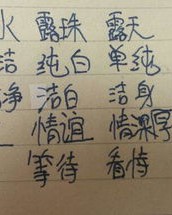 水 露珠 露天
洁 纯白 单纯
净 洁白 洁身
情谊 情深厚
等待 看待